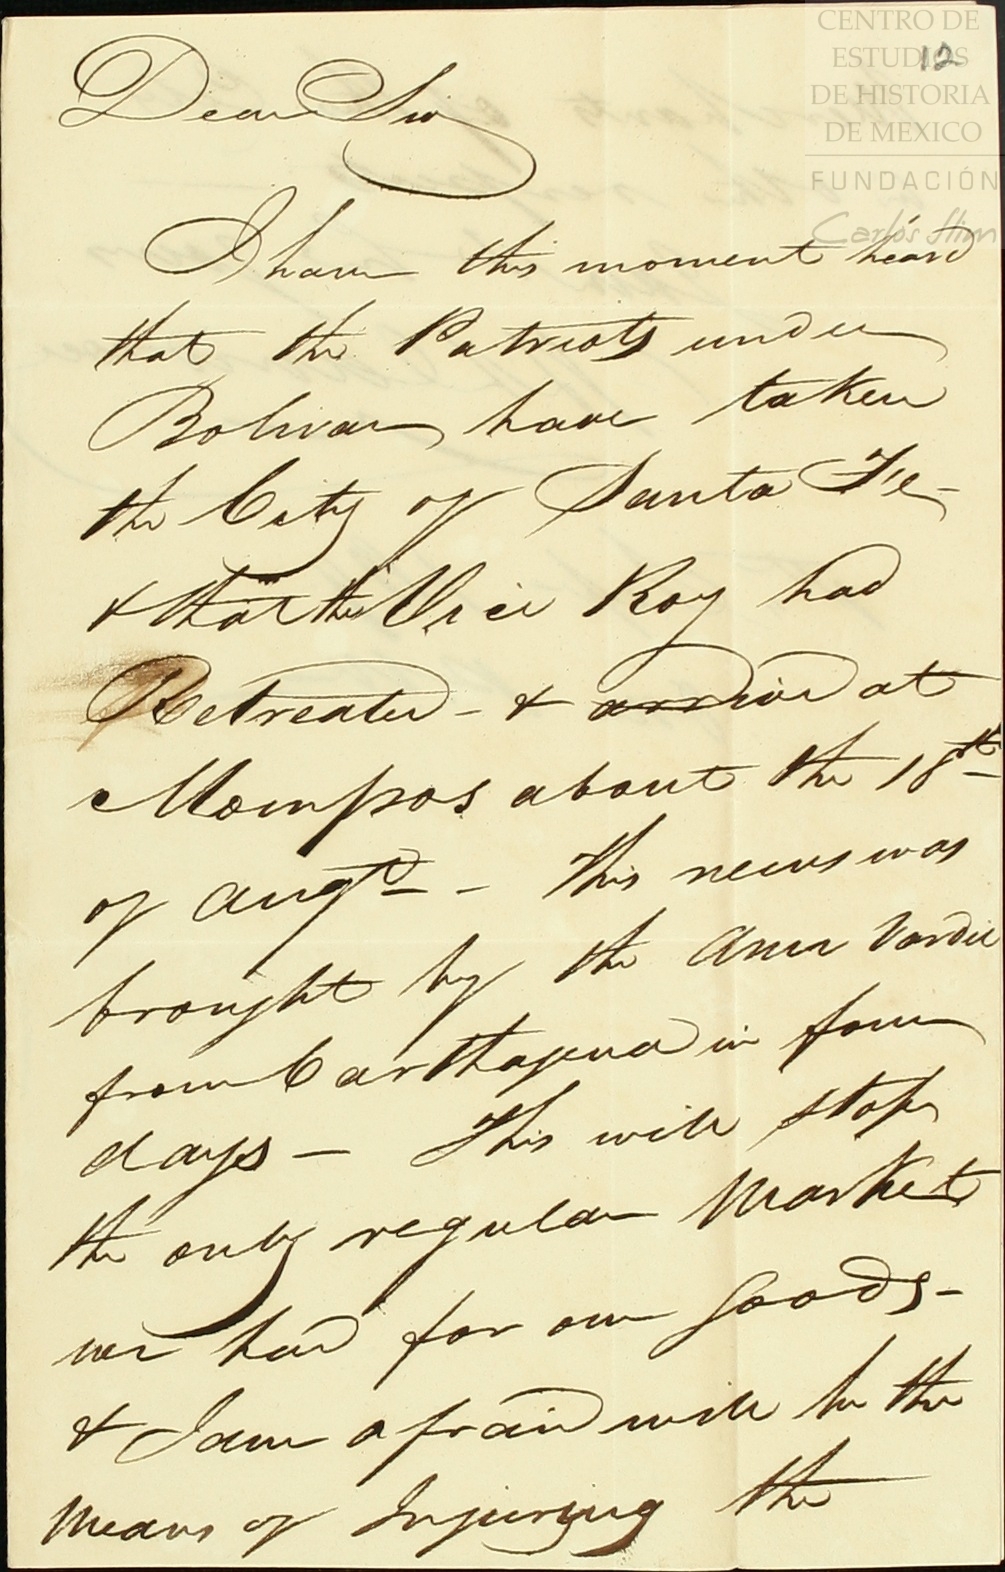 CENTRO DE
ESTUDIOS
DE HISTORIA
DE MEXICO
FUNDACIÓN
Carlos Slim
12
Dear Sir
I have this moment heard
that the Patriots under
Bolivar have taken
the City of Santa Fe -
& that the Vice Roy had
Retreated - & arrived at
Mompos about the 18th
of Augt - This news was
brought by the Ann
from Carthagena in four
days - This will stop
the only regular Market
we had for our Goods -
& I am afraid will be the
Means of Injuring the